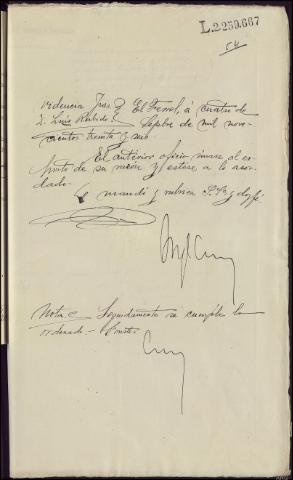 L.2259.667
54
El Ferrol, á cuatro de
D. Luis Rubido. Sepbre de mil nove-
cientos treinta y seis
El anterior oficio únase al ex-
de su razón y estese a lo acor-
dado.
Lo mandó y rubrica S.Sª y doy fé
Nota.= Seguidamente se cumple lo
ordenado.- Consta